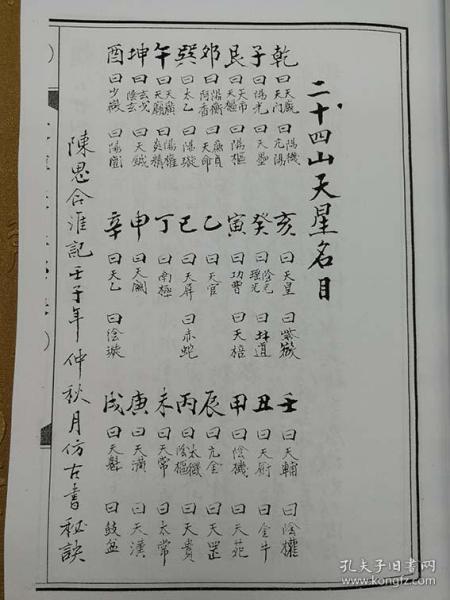 二十四山天星名目
乾 曰天廐 天門 曰陽機 亢陽
亥 曰天皇 曰紫微
壬 曰天輔 曰陰權
子 曰陽光 曰天壘
癸 曰陰光 瑤光 曰 道
丑 曰天廚 曰金牛
艮 曰天市 天樞 曰陽樞
寅 曰功曹 曰天棓
甲 曰陰機 曰天苑
卯 曰陽衡 阿香 曰 天命
乙 曰天官
辰 曰亢金 曰天罡
巽 曰太乙 曰陽璇
巳 曰天屏 曰赤蛇
丙 曰太微 陰樞 曰天貴
午 曰天廣 曰陽權 炎精
丁 曰南極
未 曰天常 曰太常
坤 曰玄戈 陰玄 曰天鉞
申 曰天關
庚 曰天潢 曰天漢
酉 曰少微 曰陽闓
辛 曰天乙 曰陰璇
戌 曰天魁 曰鼓盆
陳思合滙記壬子年仲秋月仿古書秘訣
孔夫子旧书网
www.kongfz.com